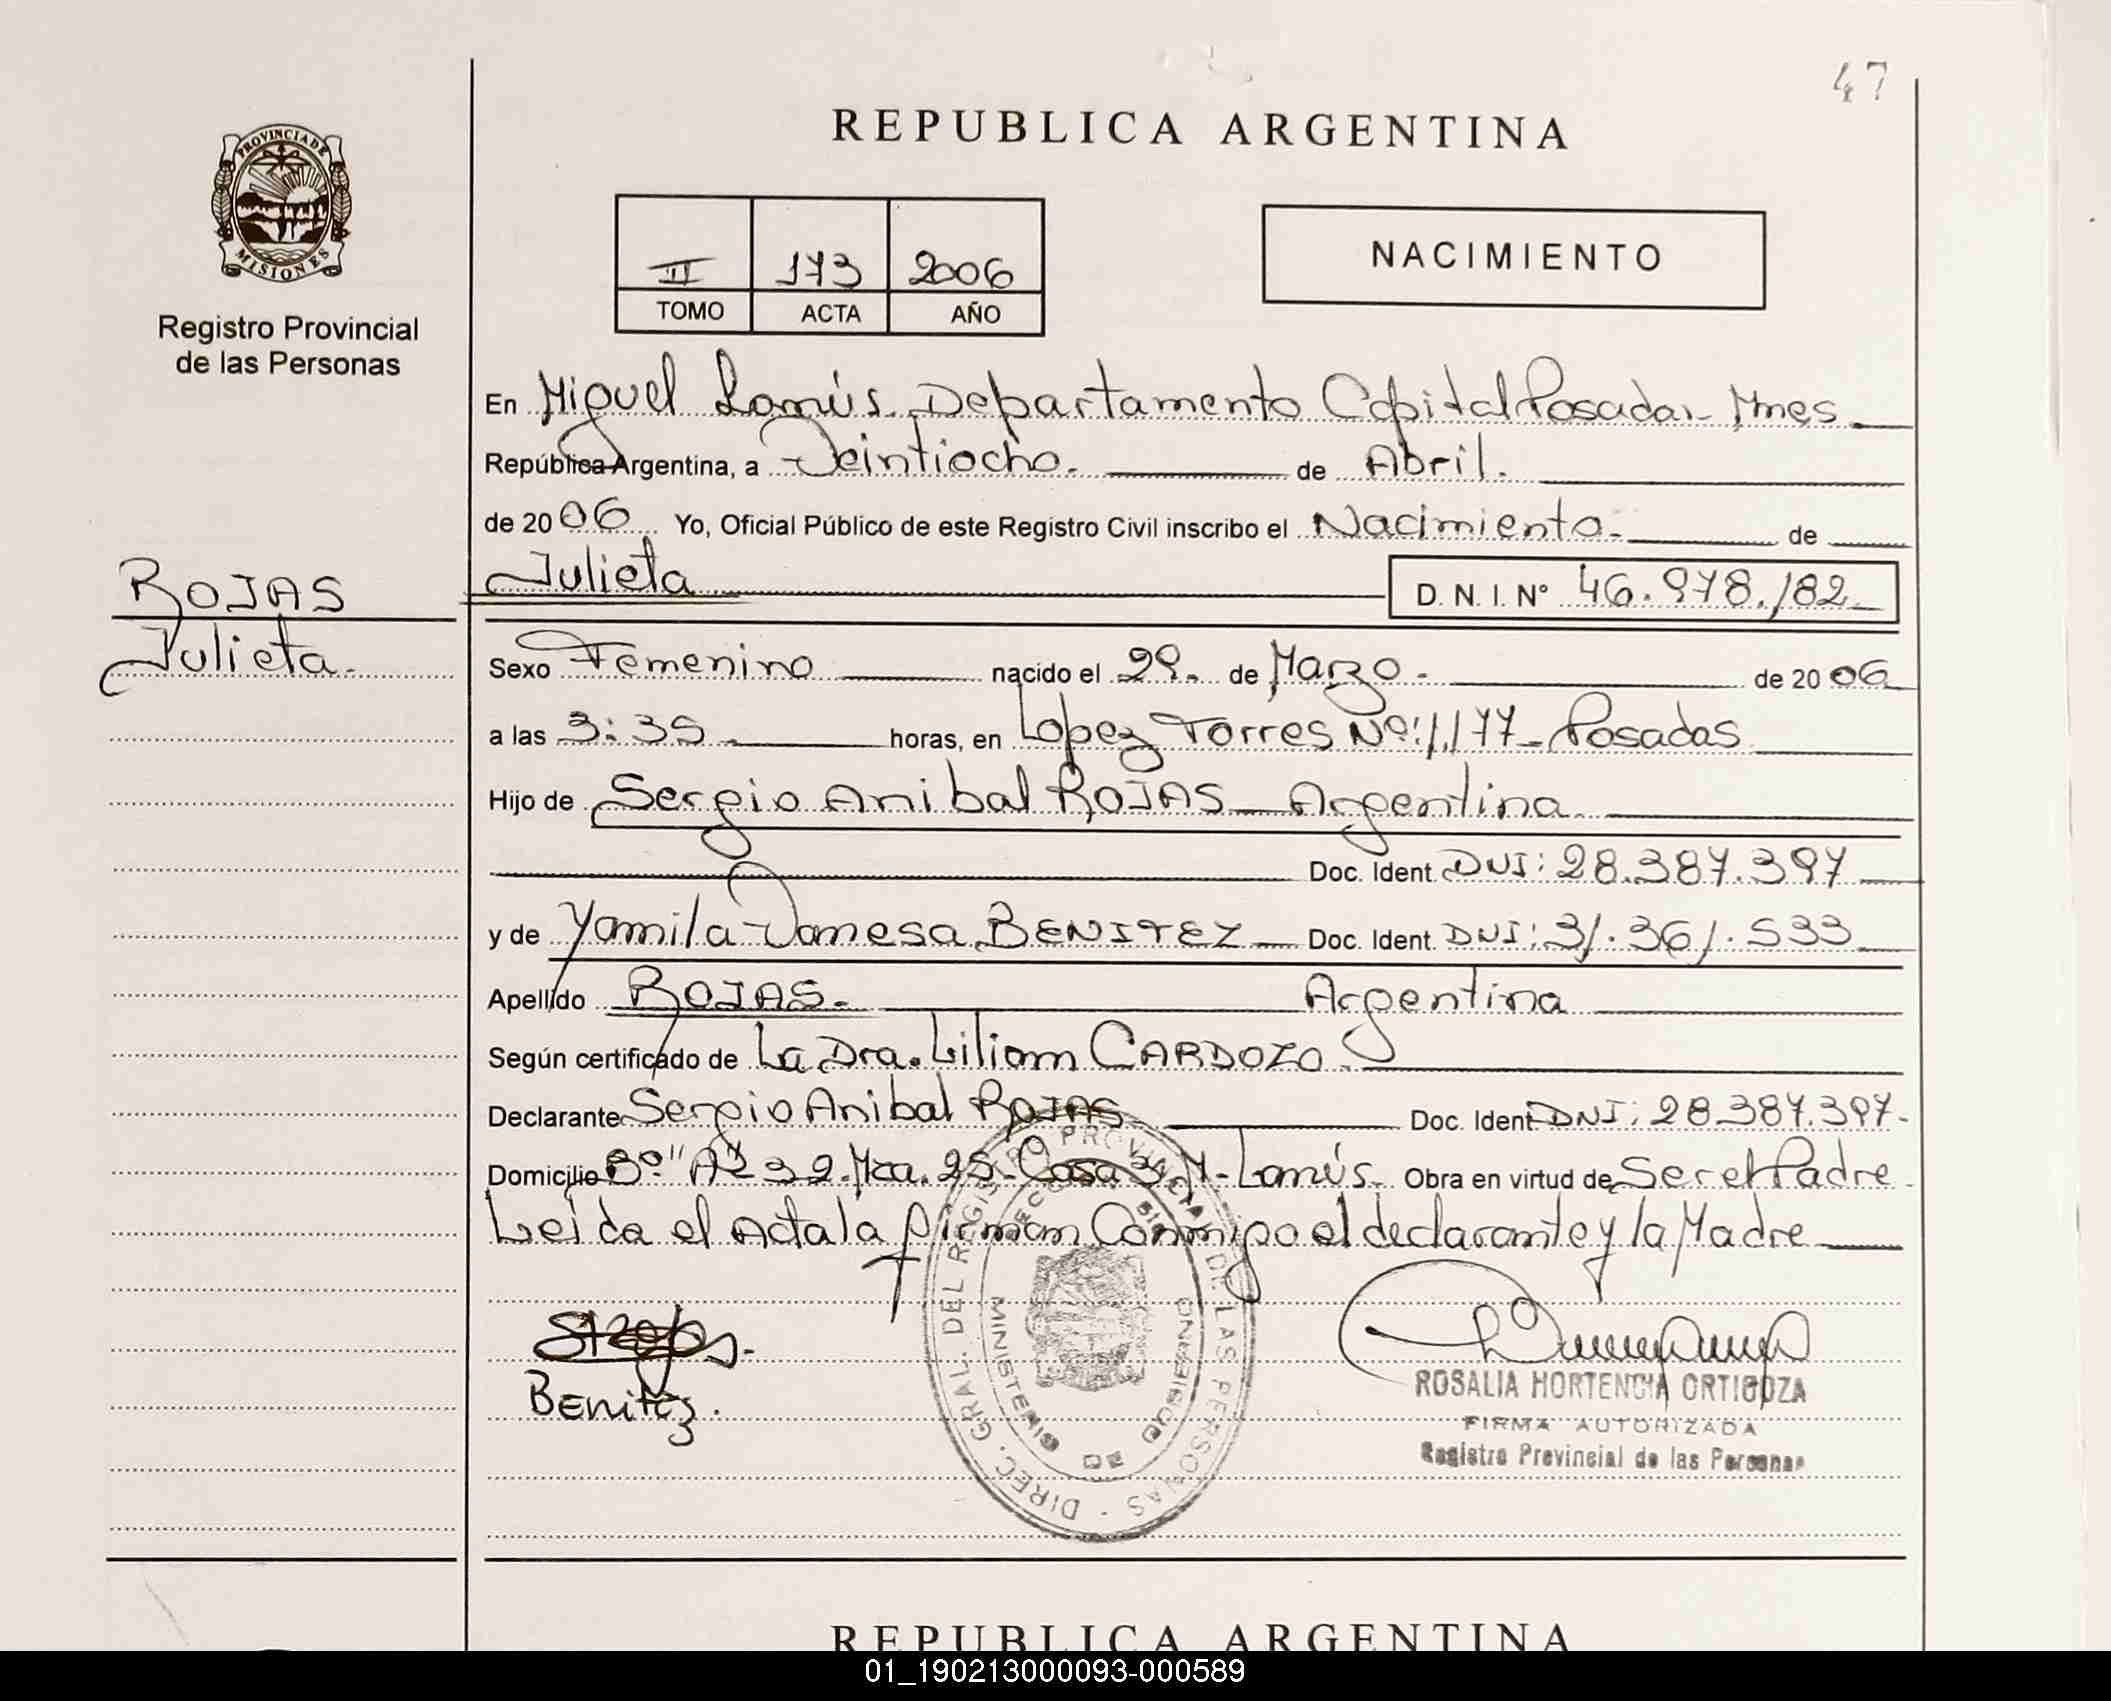 47
REPUBLICA ARGENTINA
PROVINCIA DE MISIONES
Registro Provincial
de las Personas
II 173 2006
TOMO ACTA AÑO
NACIMIENTO
En Miguel Lanús Departamento Capital Posadas - Mnes
República Argentina, a Veintiocho. de Abril.
de 2006 Yo, Oficial Público de este Registro Civil inscribo el Nacimiento. de
ROJAS
Julieta.
Julieta D. N. I. N° 46.978.182
Sexo Femenino nacido el 29. de Marzo. de 2006
a las 3:35 horas, en Lopez Torres Nº: 1.177 - Posadas
Hijo de Sergio Anibal ROJAS - Argentina
Doc. Ident. DNI: 28.387.397
y de Yamila Vanesa BENITEZ Doc. Ident. DNI: 31.361.533
Apellido ROJAS. Argentina
Según certificado de La Dra. Liliam CARDOZO
Declarante Sergio Anibal ROJAS Doc. Ident. DNI: 28.387.397-
Domicilio Bº "A" 32. Mza. 25 - Casa 3 M - Lanús. Obra en virtud de Ser el Padre
Leida el Acta la firman Conmigo el declarante y la Madre
Benitez.
DIREC. GRAL. DEL REGISTRO PROVINCIAL DE LAS PERSONAS
MINISTERIO DE GOBIERNO
ROSALIA HORTENCIA ORTIGOZA
FIRMA AUTORIZADA
Registro Provincial de las Personas
REPUBLICA ARGENTINA
01_190213000093-000589